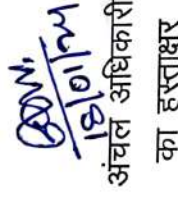 18/01/24
अंचल अधिकारी
का हस्ताक्षर